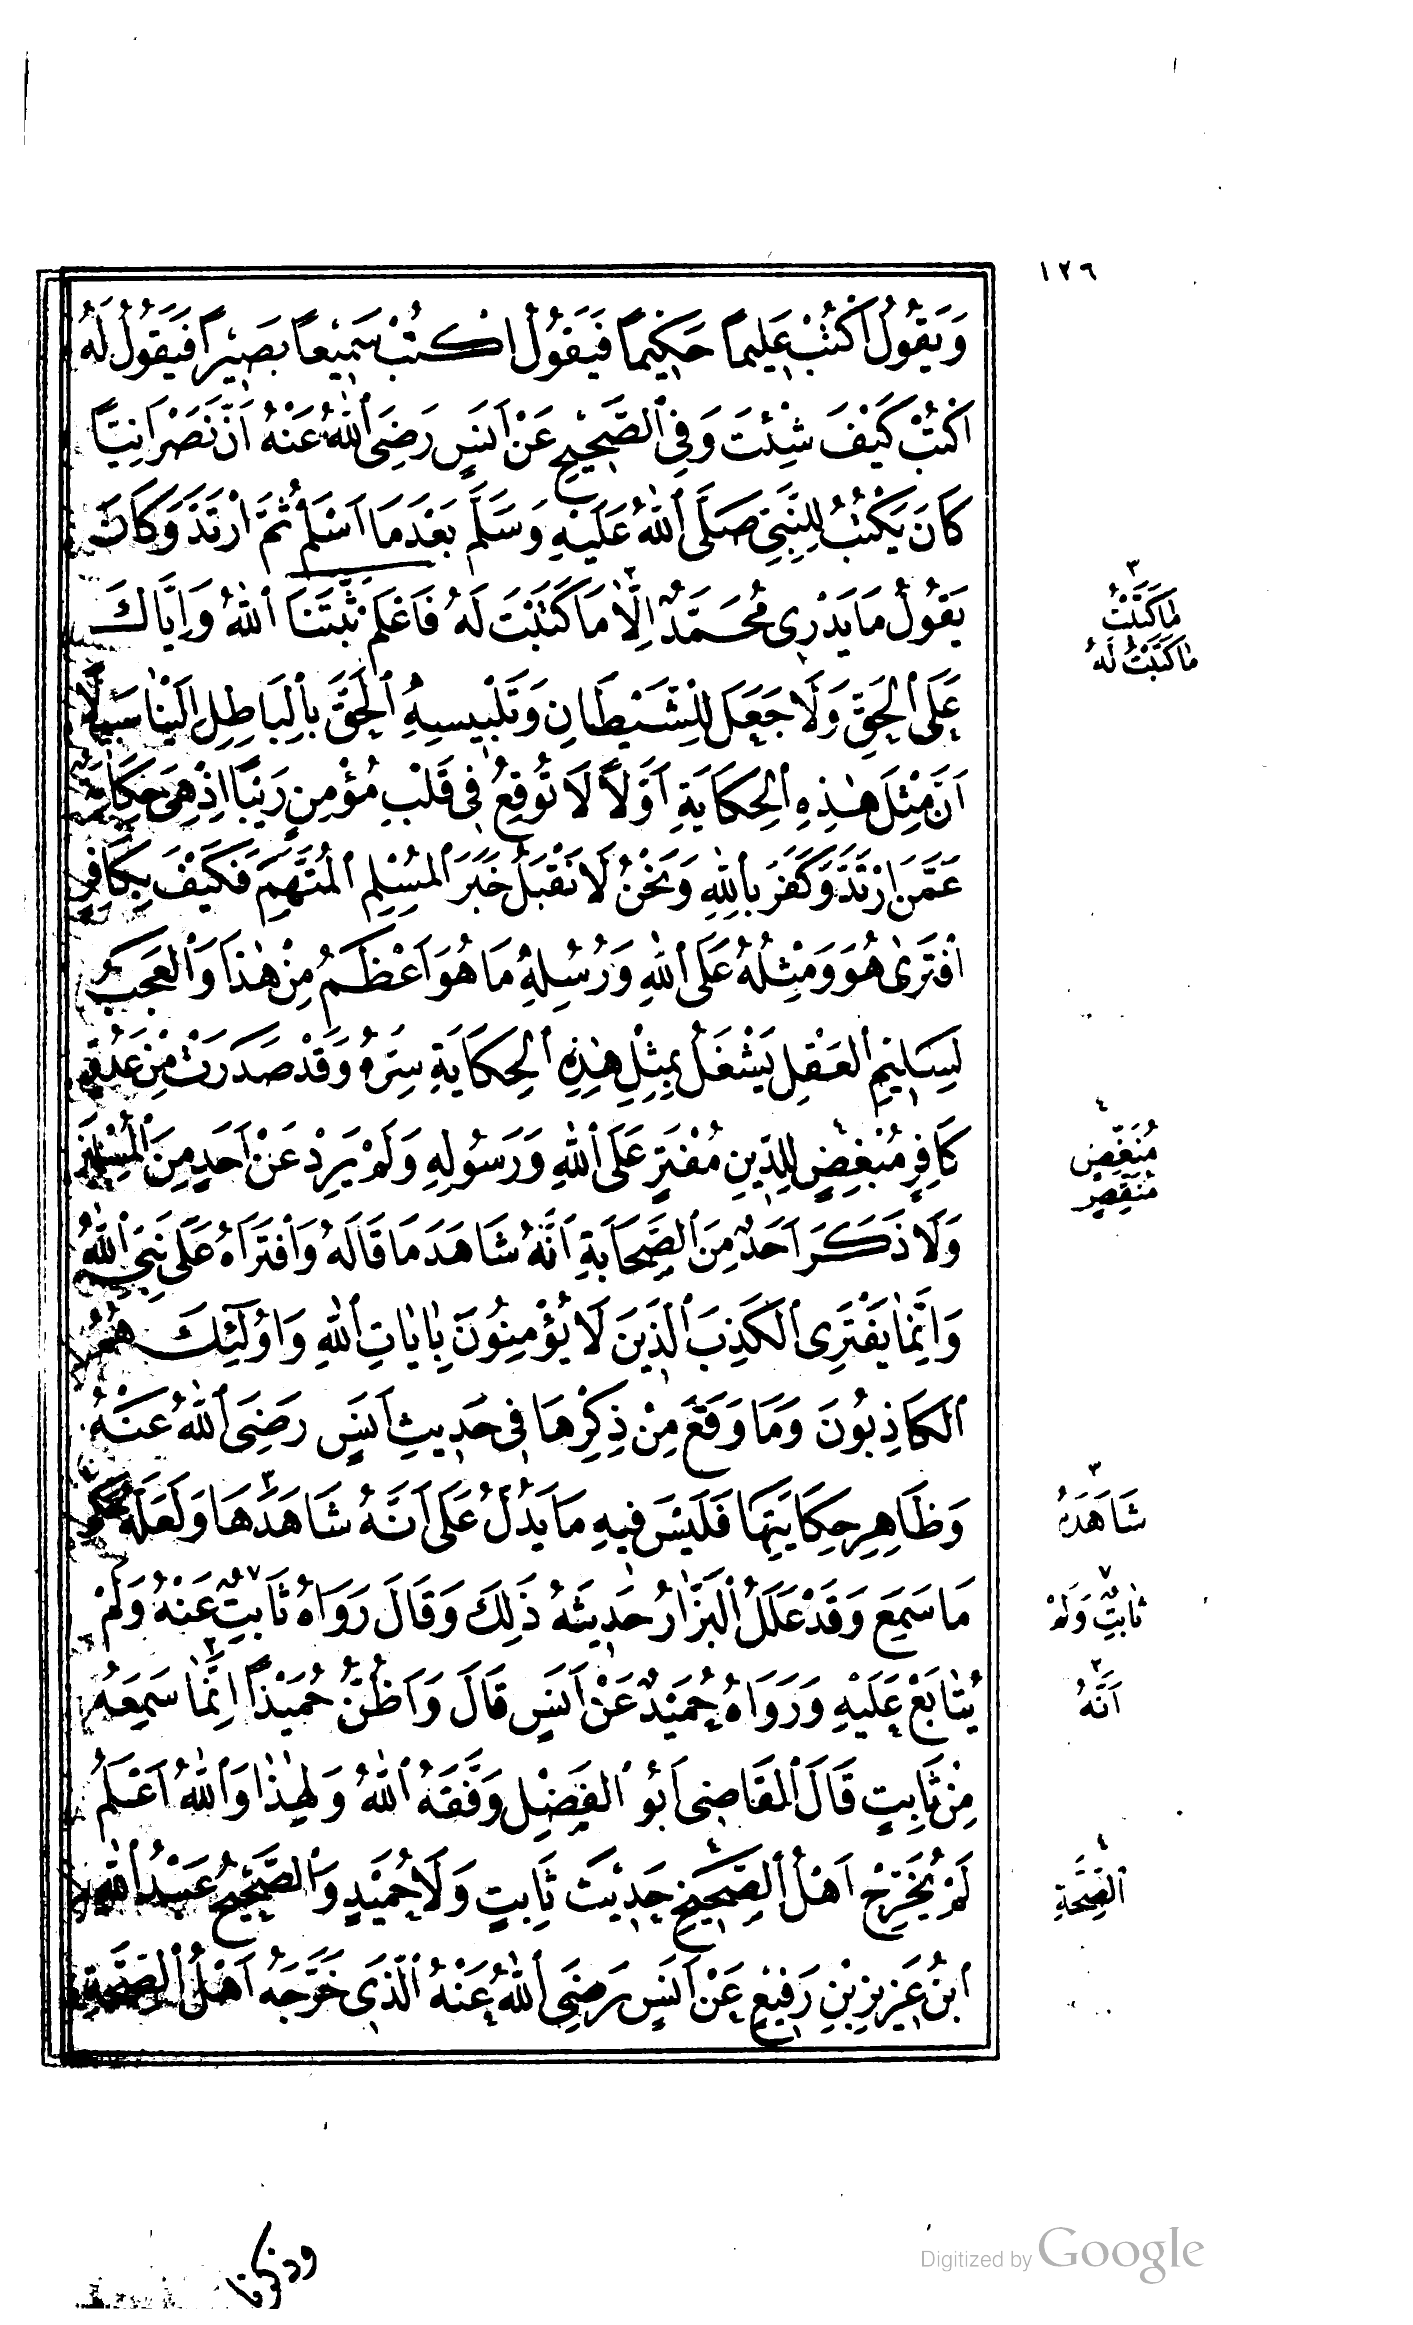 ١٢٦
وَيَقُولُ اَكْتُبُ عَلِيمًا حَكِيمًا فَيَقُولُ اكْتُبْ سَمِيعًا بَصِيرًا فَيَقُولُ لَهُ
اكْتُبْ كَيْفَ شِئْتَ وَفِى الصَّحِيحِ عَنْ اَنَسٍ رَضِىَ اللّٰهُ عَنْهُ اَنَّ نَصْرَانِيًّا
كَانَ يَكْتُبُ لِلنَّبِىِّ صَلَّى اللّٰهُ عَلَيْهِ وَسَلَّمَ بَعْدَمَا اَسْلَمَ ثُمَّ ارْتَدَّ وَكَانَ
يَقُولُ مَا يَدْرِى مُحَمَّدٌ اِلَّا ٣ مَا كَتَبْتُ لَهُ فَاعْلَمْ ثَبَّتَنَا اللّٰهُ وَاِيَّاكَ
عَلَى الْحَقِّ وَلَا جَعَلَ لِلشَّيْطَانِ وَتَلْبِيسِهِ الْحَقَّ بِالْبَاطِلِ اِلَيْنَا سَبِيلًا
اَنَّ مِثْلَ هٰذِهِ الْحِكَايَةِ اَوَّلًا لَا تُوقِعُ فِى قَلْبِ مُؤْمِنٍ رَيْبًا اِذْ هِىَ حِكَايَةٌ
عَمَّنِ ارْتَدَّ وَكَفَرَ بِاللّٰهِ وَنَحْنُ لَا نَقْبَلُ خَبَرَ الْمُسْلِمِ الْمُتَّهَمِ فَكَيْفَ بِكَافِرٍ
افْتَرٰى هُوَ وَمِثْلُهُ عَلَى اللّٰهِ وَرُسُلِهِ مَا هُوَ اَعْظَمُ مِنْ هٰذَا وَالْعَجَبُ
لِسَلِيمِ الْعَقْلِ يَشْغَلُ بِمِثْلِ هٰذِهِ الْحِكَايَةِ سِرَّهُ وَقَدْ صَدَرَتْ مِنْ عَدُوٍّ
كَافِرٍ مُبْغِضٍ ٤ لِلدِّينِ مُفْتَرٍ عَلَى اللّٰهِ وَرَسُولِهِ وَلَمْ يَرِدْ عَنْ اَحَدٍ مِنَ الْمُسْلِمِينَ
وَلَا ذَكَرَ اَحَدٌ مِنَ الصَّحَابَةِ اَنَّهُ شَاهَدَ مَا قَالَهُ وَافْتَرَاهُ عَلَى نَبِىِّ اللّٰهِ
وَاِنَّمَا يَفْتَرِى الْكَذِبَ الَّذِينَ لَا يُؤْمِنُونَ بِاٰيَاتِ اللّٰهِ وَاُولَٓئِكَ هُمُ
الْكَاذِبُونَ وَمَا وَقَعَ مِنْ ذِكْرِهَا فِى حَدِيثِ اَنَسٍ رَضِىَ اللّٰهُ عَنْهُ
وَظَاهِرِ حِكَايَتِهَا فَلَيْسَ فِيهِ مَا يَدُلُّ عَلَى اَنَّهُ شَاهَدَهَا ٣ وَلَعَلَّهُ حَكَى
مَا سَمِعَ وَقَدْ عَلَّلَ الْبَزَّارُ حَدِيثَهُ ذَلِكَ وَقَالَ رَوَاهُ ثَابِتٌ ٧ عَنْهُ وَلَمْ
يُتَابَعْ عَلَيْهِ وَرَوَاهُ حُمَيْدٌ عَنْ اَنَسٍ قَالَ وَاَظُنُّ حُمَيْدًا اِنَّمَا ٣ سَمِعَهُ
مِنْ ثَابِتٍ قَالَ الْقَاضِى اَبُو الْفَضْلِ وَفَّقَهُ اللّٰهُ وَلِهٰذَا وَاللّٰهُ اَعْلَمُ
لَمْ يُخَرِّجْ اَهْلُ الصَّحِيحِ ٤ حَدِيثَ ثَابِتٍ وَلَا حُمَيْدٍ وَالصَّحِيحُ حَدِيثُ عَبْدِ اللّٰهِ
ابْنُ عَزِيزِ بْنِ رَفِيعٍ عَنْ اَنَسٍ رَضِىَ اللّٰهُ عَنْهُ الَّذِى خَرَّجَهُ اَهْلُ الصِّحَّةِ
٣
مَا كَتَبْتُ
مَا كَتَبْتُ لَهُ
٤
مُبَغِّضٍ
مُنَقِّصٍ
٣
شَاهَدَهُ
٧
ثَابِتٌ وَلَمْ
٣
اَنَّهُ
٤
الصِّحَّةِ
وذكرنا
Digitized by Google